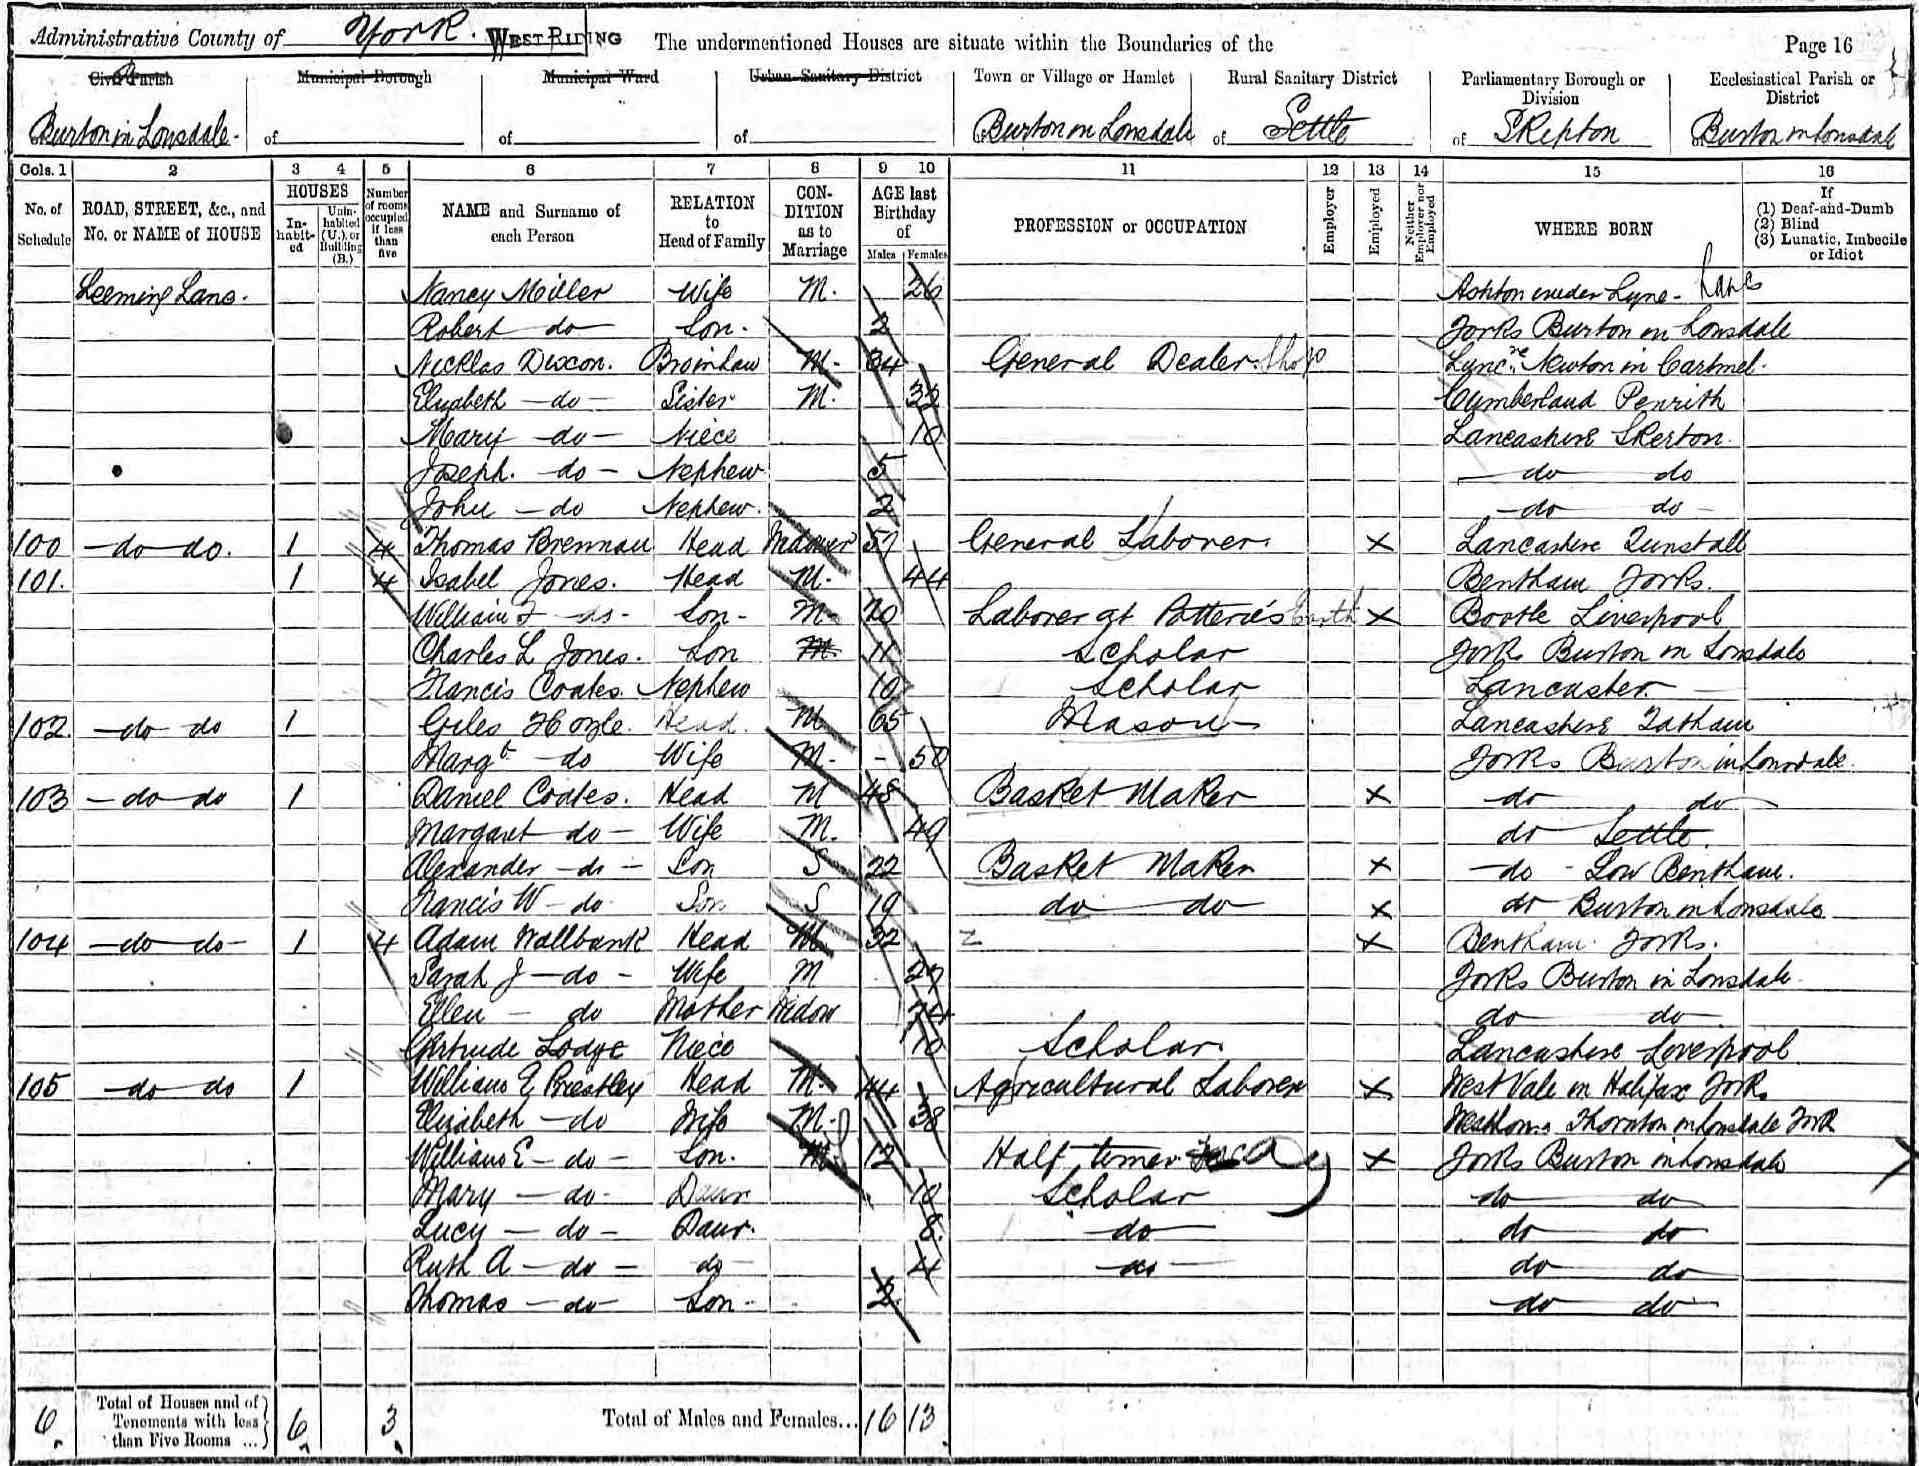 Administrative County of York. WEST RIDING The undermentioned Houses are situate within the Boundaries of the Page 16
Civil Parish Municipal Borough Municipal Ward Urban Sanitary District Town or Village or Hamlet Rural Sanitary District Parliamentary Borough or Division Ecclesiastical Parish or District
Burton in Lonsdale. of of of of Burton in Lonsdale of Settle of Skipton of Burton in Lonsdale
Cols. 1 2 3 4 5 6 7 8 9 10 11 12 13 14 15 16
No. of Schedule ROAD, STREET, &c., and No. or NAME of HOUSE HOUSES Inhabited Uninhabited (U.), or Building (B.) Number of rooms occupied if less than five NAME and Surname of each Person RELATION to Head of Family CONDITION as to Marriage AGE last Birthday of Males Females PROFESSION or OCCUPATION Employer Employed Neither Employer nor Employed WHERE BORN If (1) Deaf-and-Dumb (2) Blind (3) Lunatic, Imbecile or Idiot
Leeming Lane. Nancy Miller Wife M. 26 Ashton under Lyne - Lancs
Robert do Son. 2 Yorks Burton in Lonsdale
Nicklas Dixon. Broinlaw M. 34 General Dealer. Shop Lancre Newton in Cartmel.
Elizabeth - do - Sister M. 32 Cumberland Penrith
Mary - do - Niece 10 Lancashire Skerton
Joseph. - do - Nephew 5 do do
John - do Nephew. 2 do do
100 - do do. 1 4 Thomas Brennan Head Widower 57 General Laborer. × Lancashire Tunstall
101. 1 4 Isabel Jones. Head M. 44 Bentham Yorks.
William do - Son - M 20 Laborer at Potteries Earth × Bootle Liverpool
Charles L Jones. Son M. 11 Scholar York Burton in Lonsdale
Francis Coates. Nephew 10 Scholar Lancaster
102. - do do 1 Giles Hoyle. Head. M 65 Mason Lancashire Tatham
Margt do Wife M. - 50 Yorks Burton in Lonsdale.
103 - do do 1 Daniel Coates. Head M 48 Basket Maker × do do
Margaret do - Wife M. 49 do Settle.
Alexander - do - Son S 22 Basket Maker × do - Low Bentham.
Francis W - do Son S 19 do do × do Burton in Lonsdale
104 - do do - 1 4 Adam Wallbank Head M. 32 × Bentham Yorks.
Sarah J - do - Wife M 27 Yorks Burton in Lonsdale.
Ellen - do Mother Widow 74 do do
Gertrude Lodge Niece 10 Scholar. Lancashire Liverpool
105 - do do 1 William E Priestley Head M. 44 Agricultural Laborer × West Vale in Halifax York.
Elizabeth - do Wife M. 38 Thornton in Lonsdale York
William E - do - Son. M. 12 Half timer × Yorks Burton in Lonsdale
Mary - do - Daur 10 Scholar do do
Lucy - do - Daur. 8. do do do
Ruth A - do - do 4 do do do
Thomas - do - Son - 2 do do
6 Total of Houses and of Tenements with less than Five Rooms ... 6 3 Total of Males and Females... 16 13